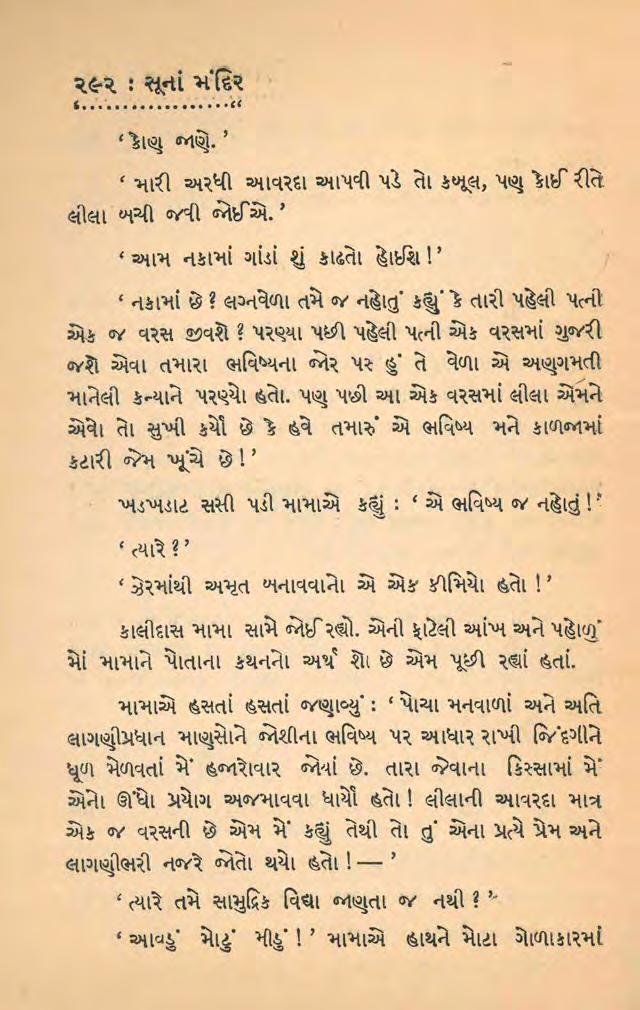 ૨૯૨ : સૂનાં મંદિર
‘ કોણ જાણે. ’
‘ મારી અરધી આવરદા આપવી પડે તો કબૂલ, પણ કોઈ રીતે
લીલા બચી જવી જોઈએ. ’
‘ આમ નકામાં ગાંડાં શું કાઢતો હોઈશ ! ’
‘ નકામાં છે ? લગ્નવેળા તમે જ નહોતું કહ્યું કે તારી પહેલી પત્ની
એક જ વરસ જીવશે ? પરણ્યા પછી પહેલી પત્ની એક વરસમાં ગુજરી
જશે એવા તમારા ભવિષ્યના જોર પર હું તે વેળા એ અણગમતી
માનેલી કન્યાને પરણ્યો હતો. પણ પછી આ એક વરસમાં લીલા એમને
એવો તો સુખી કર્યો છે કે હવે તમારું એ ભવિષ્ય મને કાળજામાં
કટારી જેમ ખૂંચે છે ! ’
ખડખડાટ સસી પડી મામાએ કહ્યું : ‘ એ ભવિષ્ય જ નહોતું ! ’
‘ ત્યારે ? ’
‘ ઝેરમાંથી અમૃત બનાવવાનો એ એક કીમિયો હતો ! ’
કાલીદાસ મામા સામે જોઈ રહ્યો. એની ફાટેલી આંખ અને પહોળું
મોં મામાને પોતાના કથનનો અર્થ શો છે એમ પૂછી રહ્યાં હતાં.
મામાએ હસતાં હસતાં જણાવ્યું : ‘ પોચા મનવાળાં અને અતિ
લાગણીપ્રધાન માણસોને જોશીના ભવિષ્ય પર આધાર રાખી જિંદગીને
ધૂળ મેળવતાં મેં હજારોવાર જોયાં છે. તારા જેવાના કિસ્સામાં મેં
એનો ઊંધો પ્રયોગ અજમાવવા ધાર્યો હતો ! લીલાની આવરદા માત્ર
એક જ વરસની છે એમ મેં કહ્યું તેથી તો તું એના પ્રત્યે પ્રેમ અને
લાગણીભરી નજરે જોતો થયો હતો ! — ’
‘ ત્યારે તમે સામુદ્રિક વિદ્યા જાણતા જ નથી ? ’
‘ આવડું મોટું મીડું ! ’ મામાએ હાથને મોટા ગોળાકારમાં